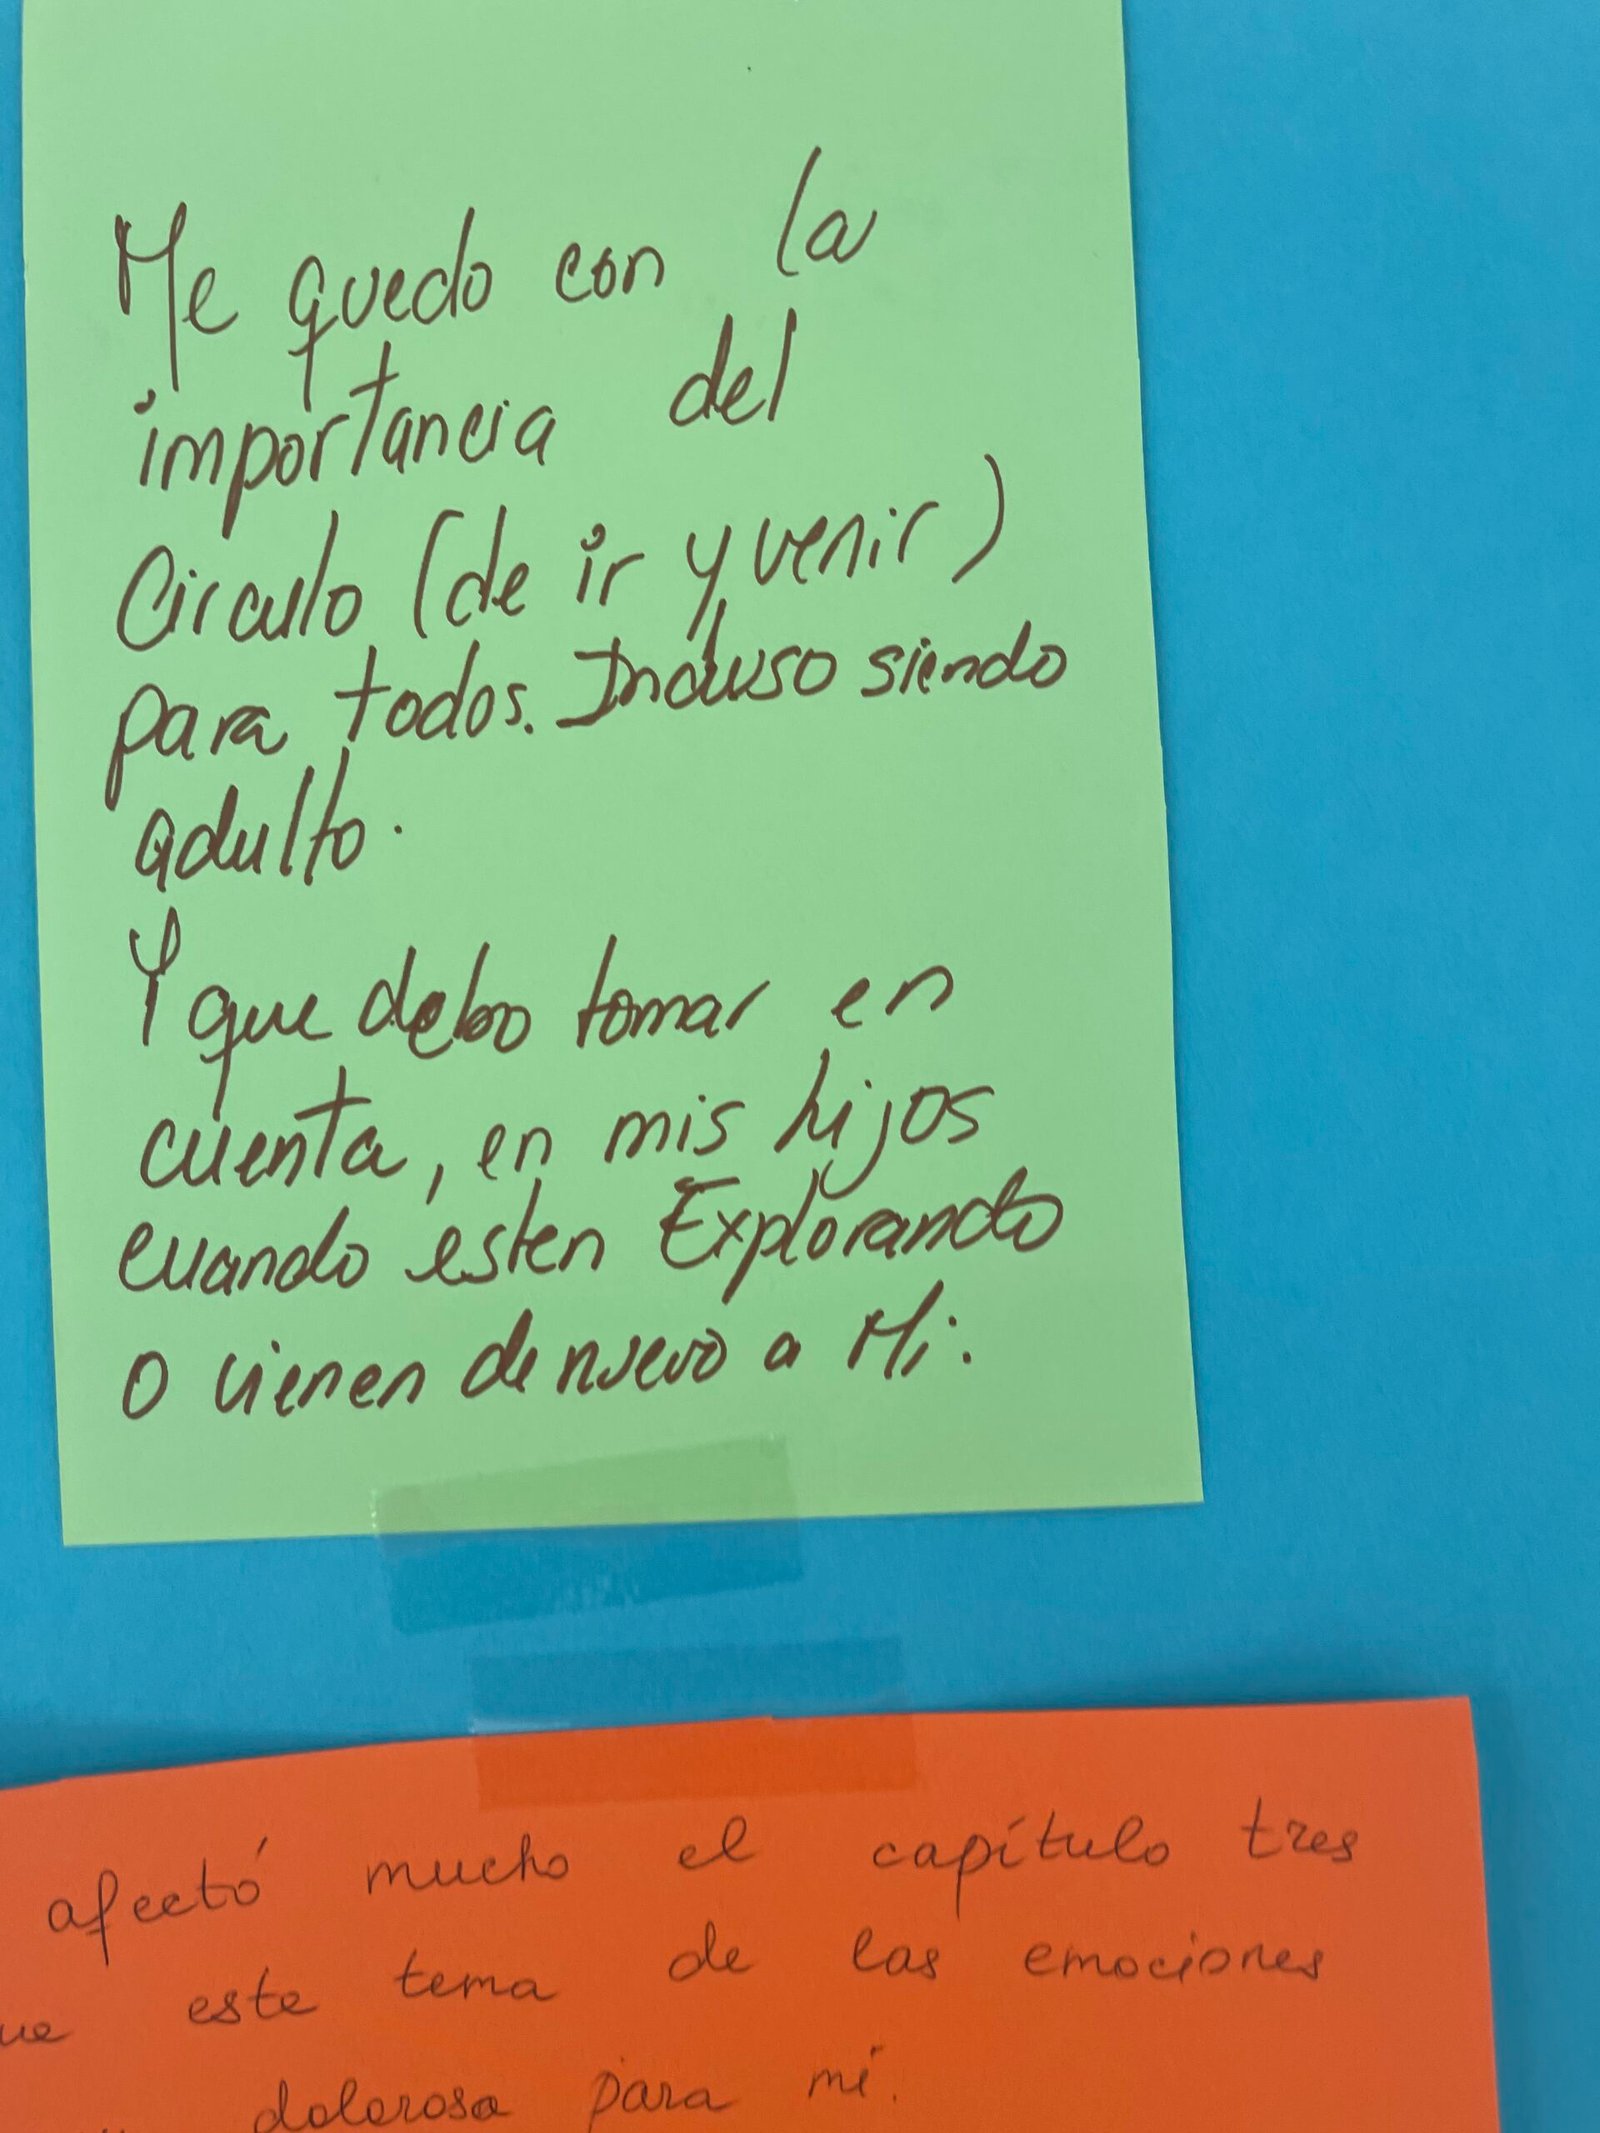 Me quedo con la
importancia del
Circulo (de ir y venir)
para todos. Incluso siendo
adulto.
Y que debo tomar en
cuenta, en mis hijos
cuando esten Explorando
o vienen de nuevo a Mi.
afectó mucho el capítulo tres
este tema de las emociones
dolorosa para mí.